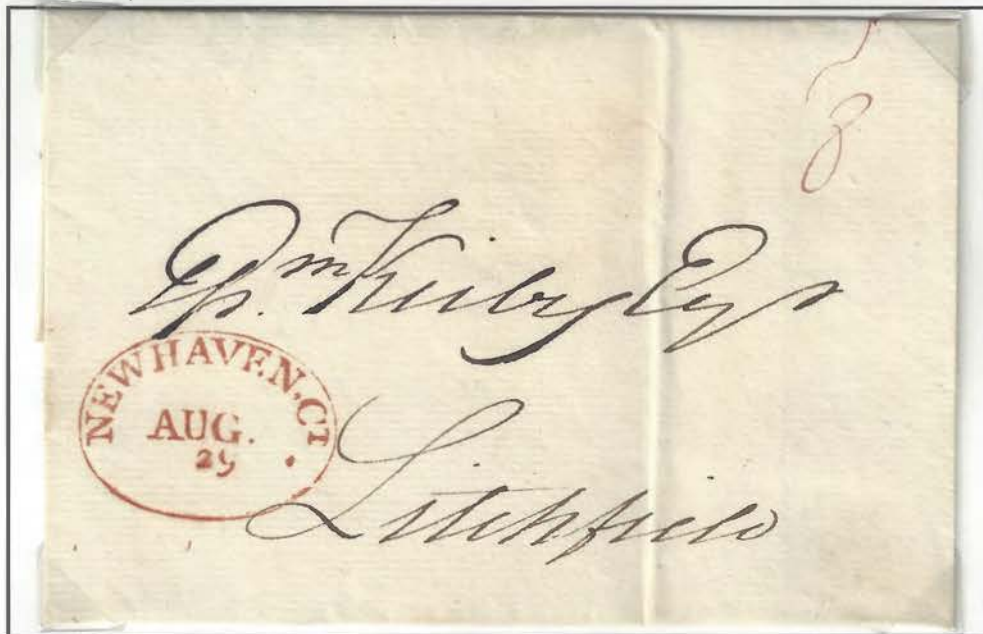 8
Epm Kirby Esqr
NEWHAVEN.CT
AUG.
29
Litchfield